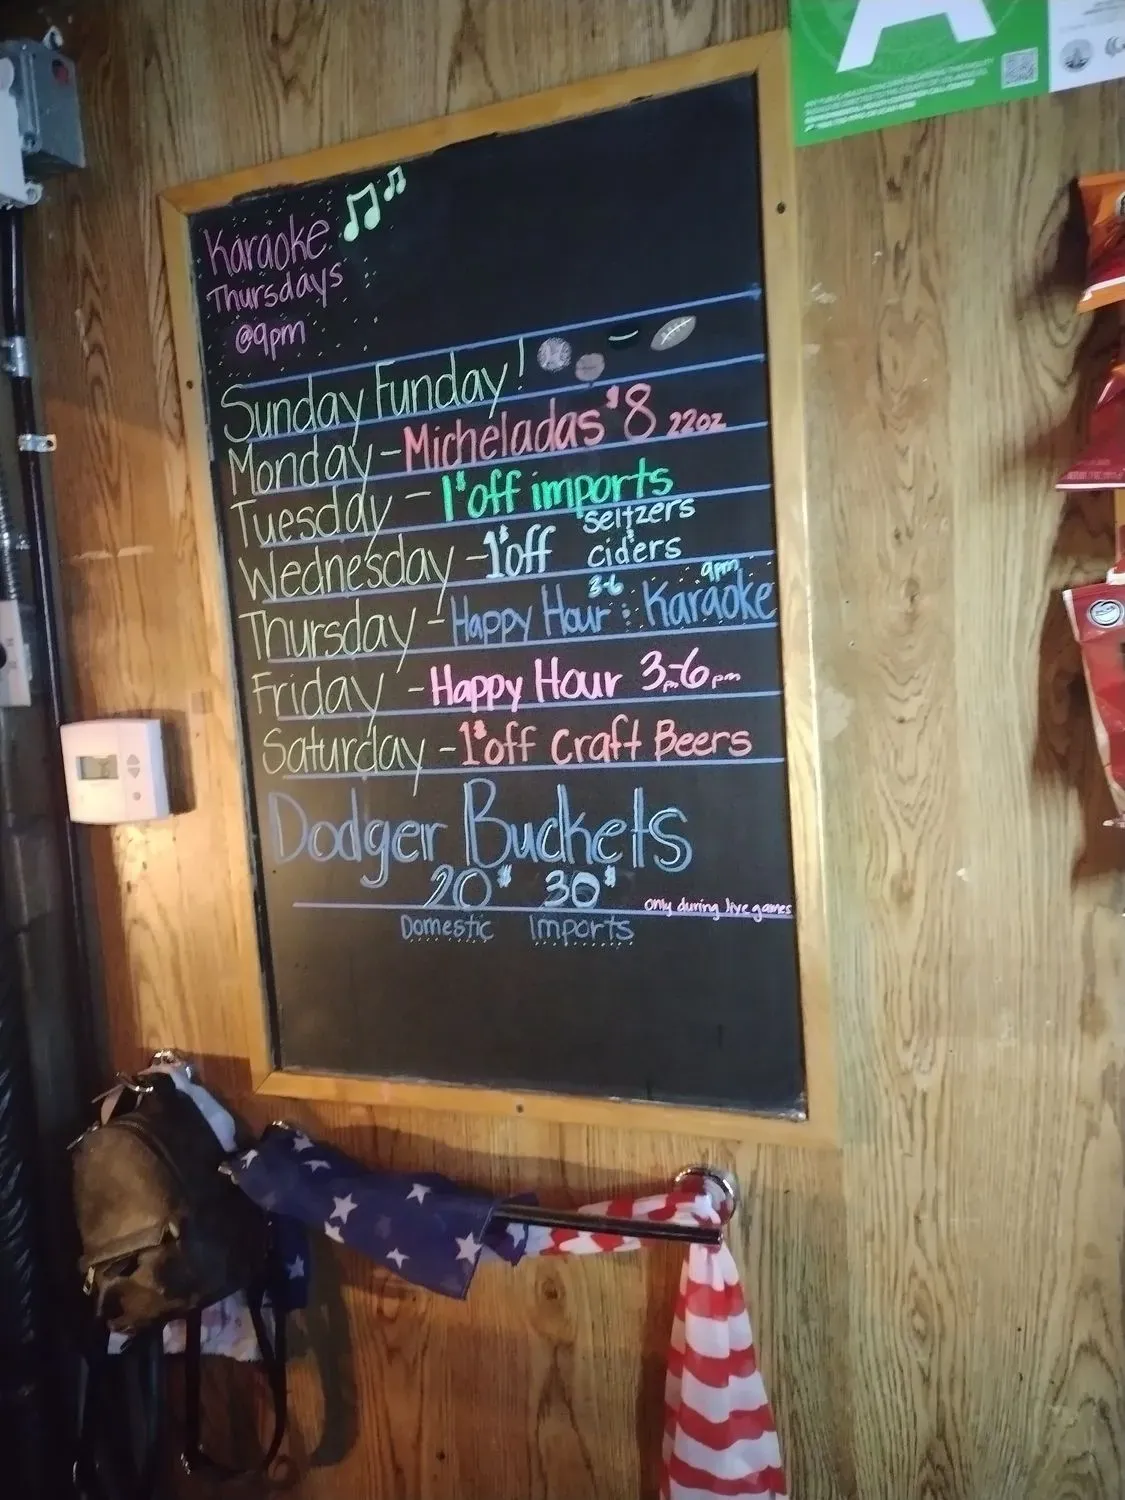 A
Karaoke
Thursdays
@9pm
Sunday Funday!
Monday - Micheladas $8 22oz
Tuesday - 1$ off imports
Wednesday - 1$ off seltzers
ciders
Thursday - Happy Hour 3-6 : Karaoke 9pm
Friday - Happy Hour 3pm-6pm
Saturday - 1$ off Craft Beers
Dodger Buckets
20$ 30$ only during live games
Domestic Imports